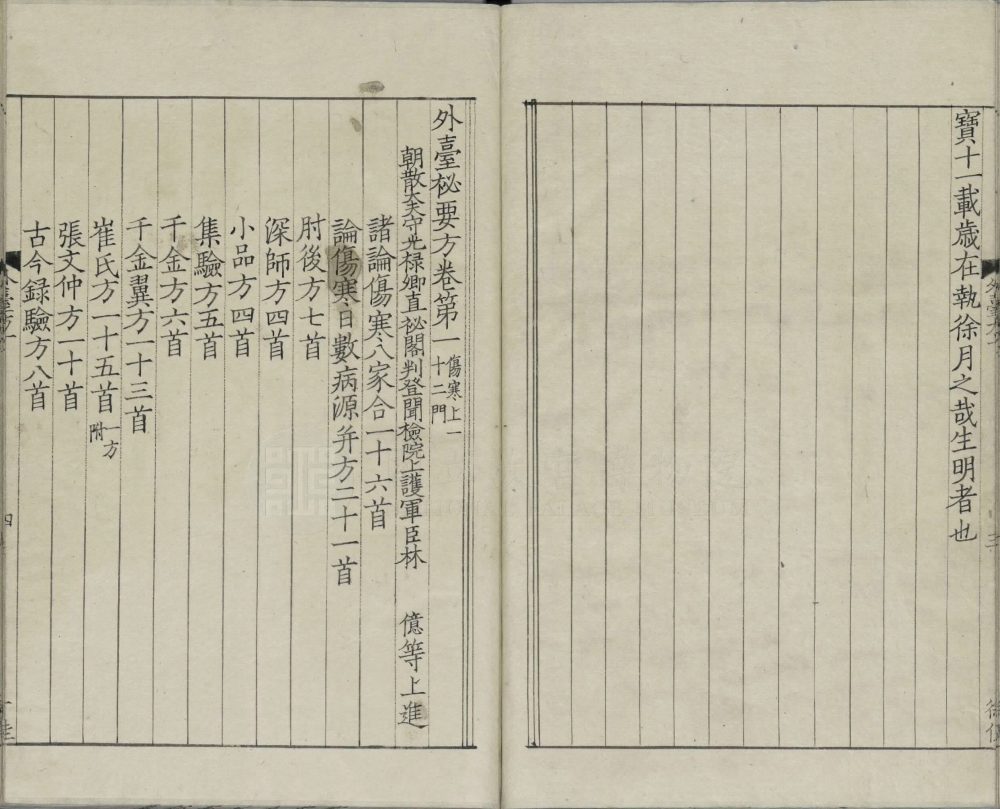 寶十一載歳在執徐月之哉生明者也
外臺秘要方卷第一 傷寒上一十二門
朝散大夫守光禄卿直秘閣判登聞檢院上護軍臣林 億等上進
諸論傷寒八家合一十六首
論傷寒日數病源并方二十一首
肘後方七首
深師方四首
小品方四首
集驗方五首
千金方六首
千金翼方一十三首
崔氏方一十五首 一方附
張文仲方一十首
古今録驗方八首
四